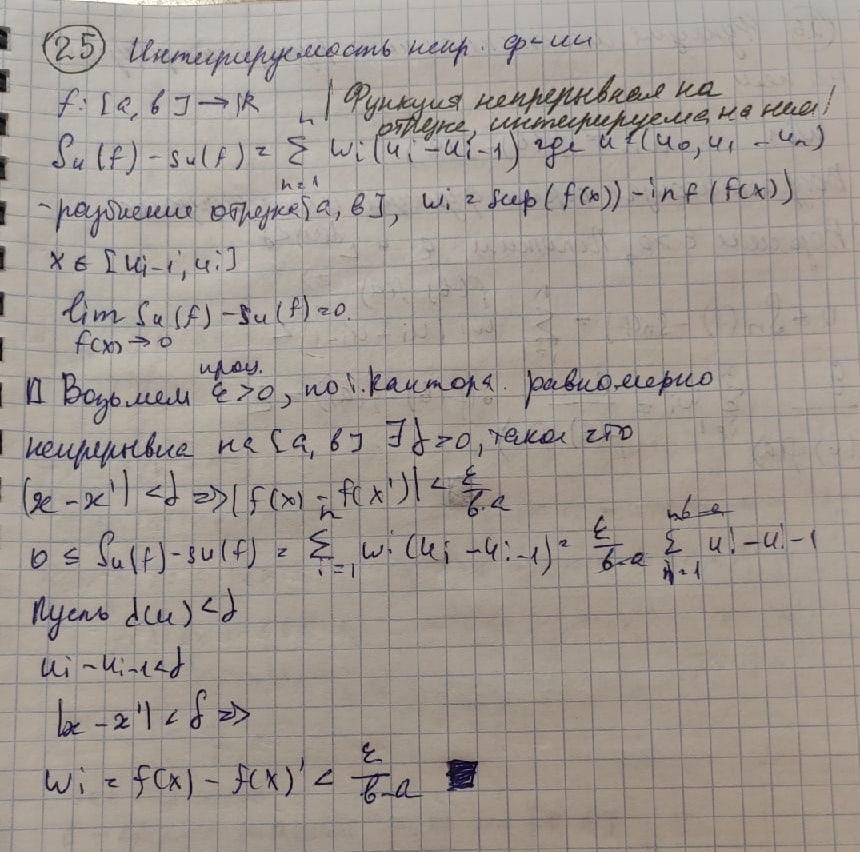 25 Интегрируемость непр. ф-ии
f: [a, b] → R | Функция непрерывная на
отрезке, интегрируема на нём!
Su(f) - su(f) = n Σ n=1 wi(ui - ui-1) где u = (u0, u1 - un)
- разбиение отрезка [a, b], wi = sup(f(x)) - inf(f(x))
x ∈ [ui-1, ui]
lim Su(f) - su(f) = 0.
f(x) → 0
проц.
П Возьмем ε > 0, по т. Кантора. равномерно
непрерывна на [a, b] ∃ δ > 0, такое что
|x - x'| < δ => |f(x) - f(x')| < ε/b-a
0 ≤ Su(f) - su(f) = n Σ i=1 wi (ui - ui-1) = ε/b-a Σ n=1 ui - ui-1
Пусть d(u) < δ
ui - ui-1 < δ
|x - x'| < δ =>
wi = f(x) - f(x)' < ε/b-a ■